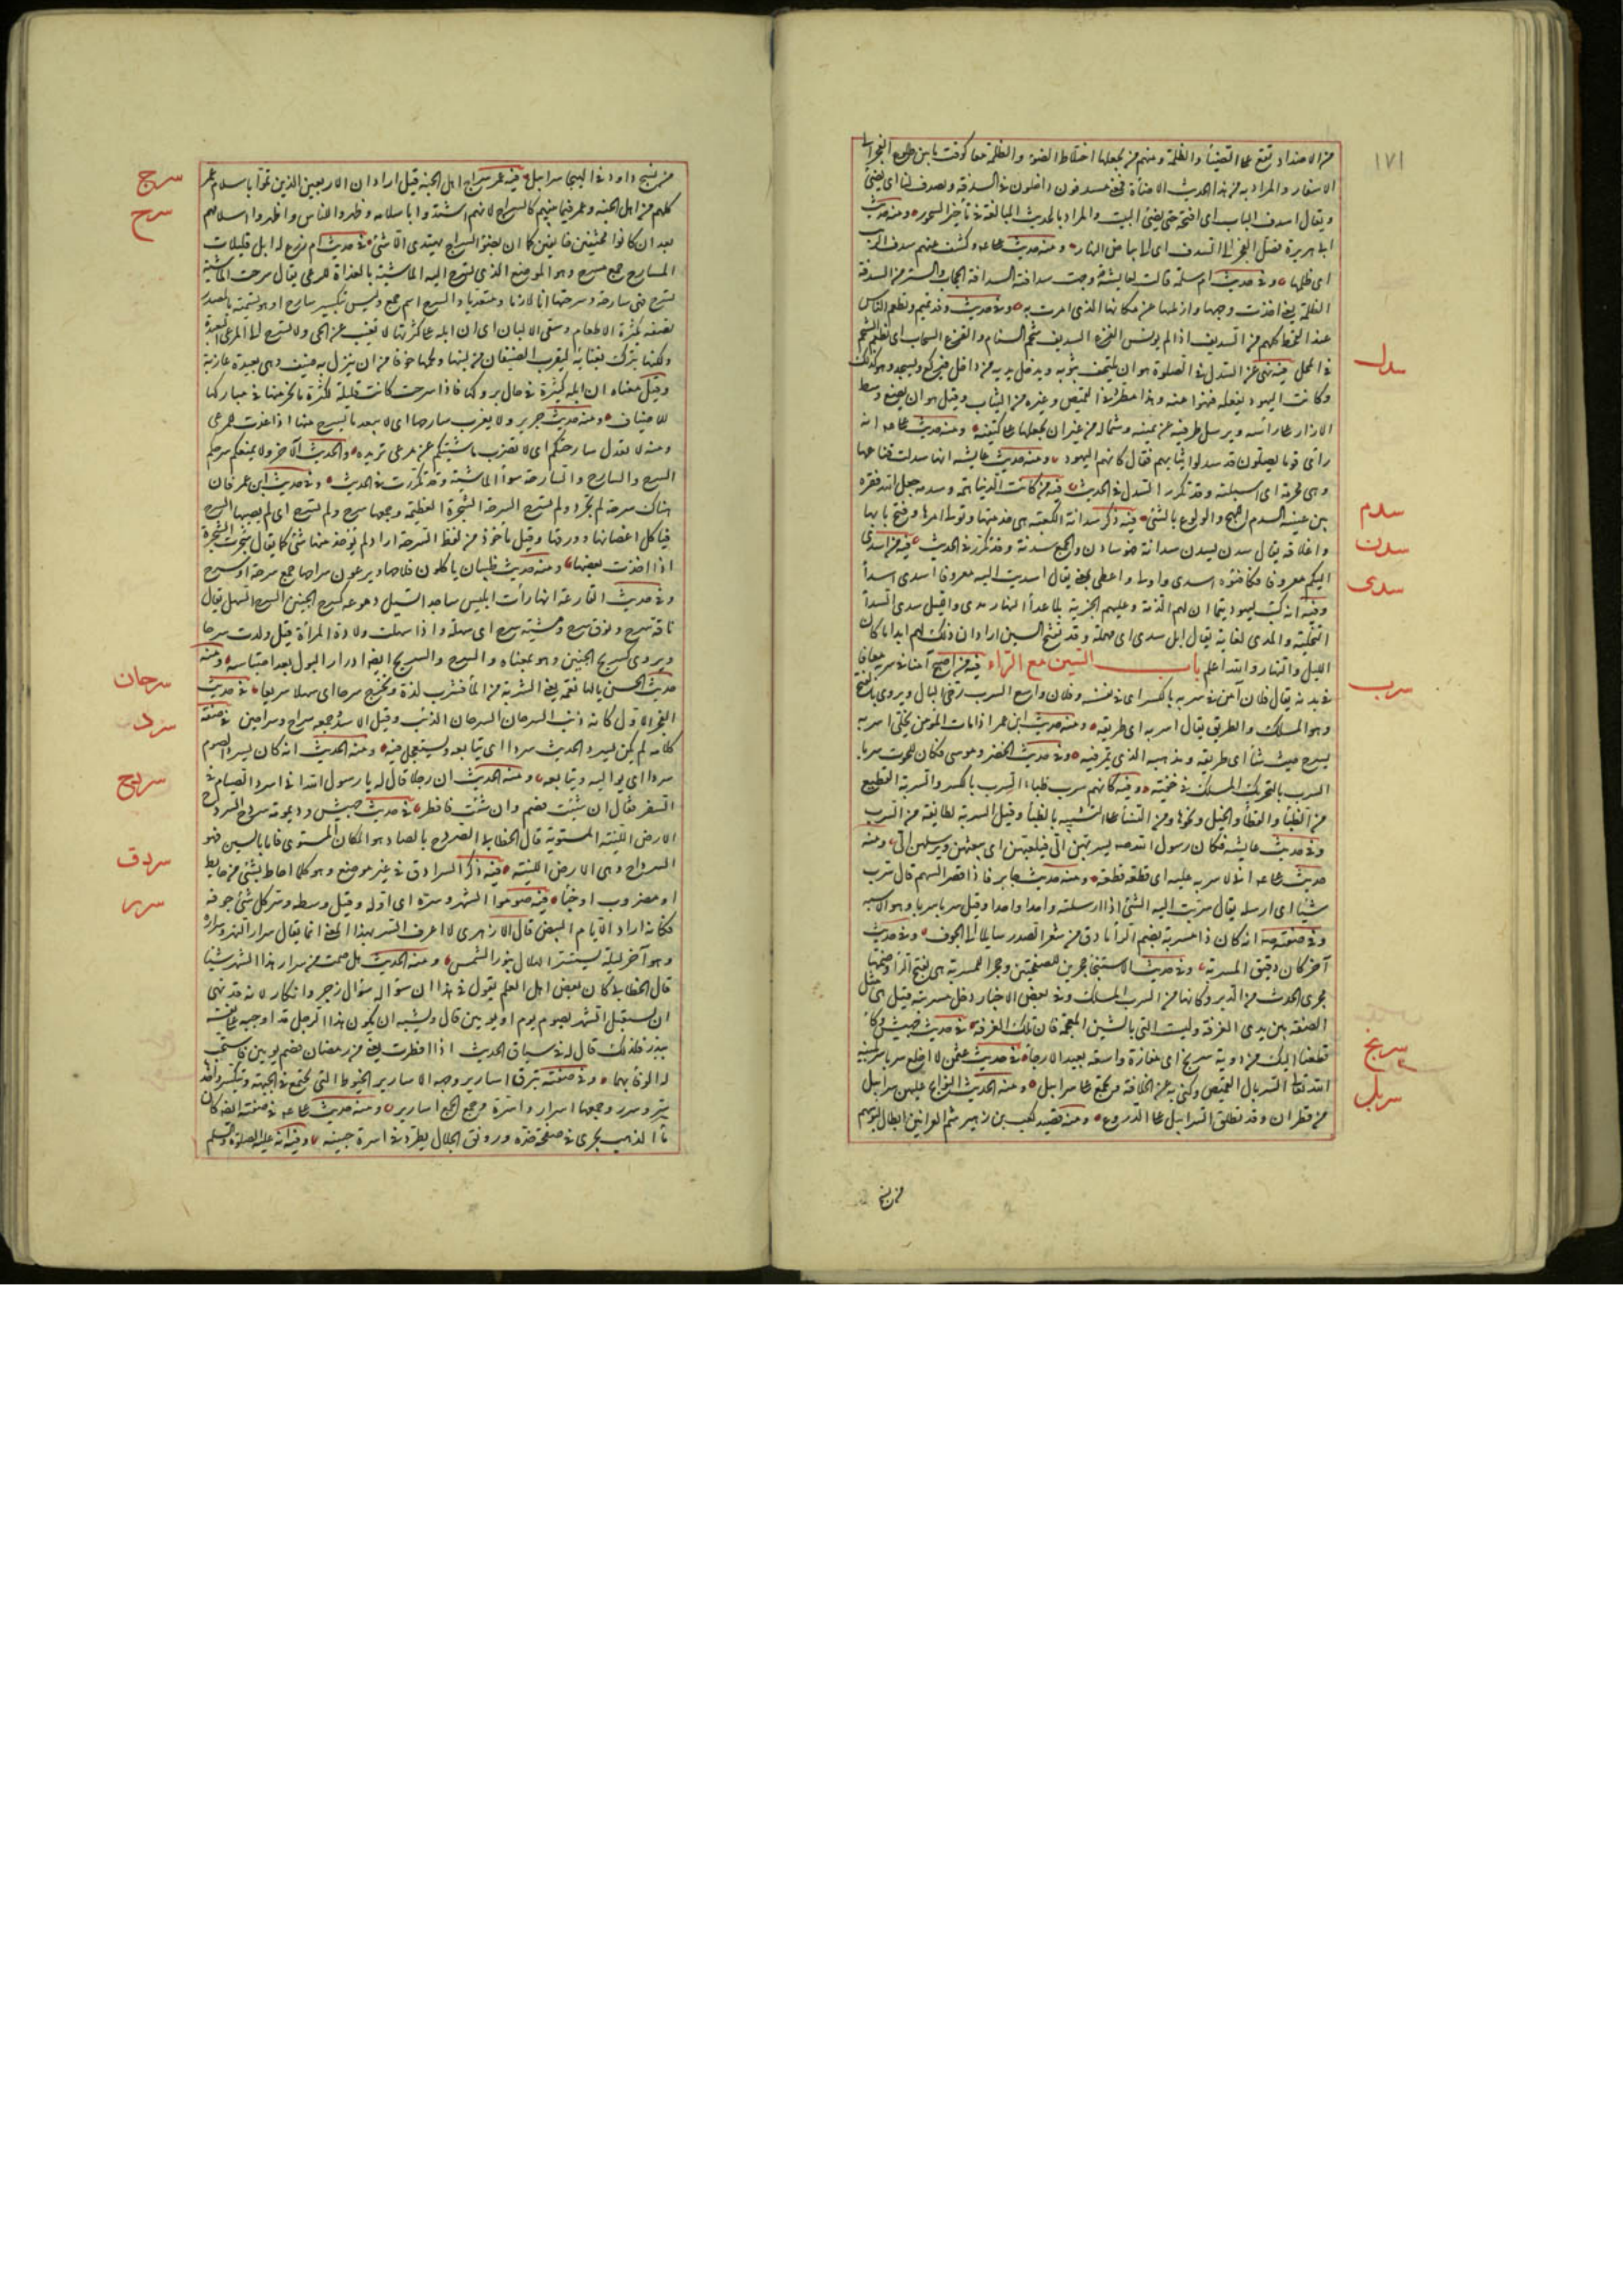 ١٧١
من الاضداد تقع على الضياء والظلمة ومنهم من يجعلها اختلاط الضوء والظلمة معا كوقت ما بين طلوع الفجر الى
الاسفار والمراد به من هذا الحديث الاضاءة فمعنى مسدفون داخلون فى السدفة ويسدف لنا اى يضئ
ويقال اسدف الباب اى افتحه حتى يضئ البيت والمراد بالحديث المبالغة فى تأخير السحور ومنه حديث
ابى هريرة فصل الفجر الى السدف اى الى بياض النهار ومنه حديث على وكشفت عنهم سدف الريب
اى ظلمها وفى حديث ام سلمة قالت لعايشة وجهت سدافته السدافة الحجاب والستر من السدفة
الظلمة يعنى اخذت وجهها وازلتها عن مكانها الذى امرت به وفى حديث وفد تميم ونطعم الناس
عند القحط كلهم من السديف اذا لم يونس القزع السديف شحم السنام والقزع السحاب اى نطعم الشحم
سدل
فى المحل فيه نهى عن السدل فى الصلوة هو ان يلتحف بثوبه ويدخل يديه من داخل فيركع ويسجد وهو كذلك
وكانت اليهود تفعله فنهوا عنه وهذا مطرد فى القميص وغيره من الثياب وقيل هو ان يضع وسط
الازار على رأسه ويرسل طرفيه عن يمينه وشماله من غير ان يجعلهما على كتفيه ومنه حديث على انه
رأى قوما يصلون قد سدلوا ثيابهم فقال كانهم اليهود ومنه حديث عايشة انها سدلت قناعها
سدم
وهى محرمة اى اسبلته وقد تكرر السدل فى الحديث فيه من كانت الدنيا همه وسدمه جعل الله فقره
سدن
بين عينيه السدم اللهج والولوع بالشئ فيه ذكر سدانة الكعبة هى خدمتها وتولى امرها وفتح بابها
واغلاقه يقال سدن يسدن سدانة فهو سادن والجمع سدنة وقد تكرر فى الحديث فيه من اسدى
سدى
اليكم معروفا فكافئوه اسدى واولى واعطى بمعنى يقال اسديت اليه معروفا اسدى اسداء
وفيه انه كتب ليهود تيماء ان لهم الذمة وعليهم الجزية بلا عداء النهار مدى والليل سدى السدى
التخلية والمدى الغاية يقال ابل سدى اى مهملة وقد تفتح السين اراد ان ذلك لهم ابدا ما كان
الليل والنهار والله اعلم باب السين مع الراء فيه من اصبح آمنا فى سربه معافا
سرب
فى بدنه يقال فلان آمن فى سربه بالكسر اى فى نفسه وفلان واسع السرب رخى البال ويروى بالفتح
وهو المسلك والطريق يقال اسربه اى طريقه ومنه حديث ابن عمر اذا مات المؤمن يخلى له سربه
يسرح حيث شاء اى طريقه ومذهبه الذى يمر فيه وفى حديث الخضر وموسى فكان للحوت سربا
السرب بالتحريك المسلك فى خفية وفيه كانهم سرب ظباء السرب بالكسر والسربة القطيع
من الظباء والقطا والخيل ونحوها ومن النساء على التشبيه بالظباء وقيل السربة لطايفة من السرب
وفى حديث عايشة فكان رسول الله صلعم يسربهن الى فيلعبن اى يبعثهن ويرسلهن الى ومنه
حديث على انى لاسربه عليه اى قطعة قطعة ومنه حديث جابر فاذا قصر السهم قال سرب
شيئا اى ارسله يقال سربت اليه الشئ اذا ارسلته واحدا واحدا وقيل سربا سربا وهو الاشبه
وفى صفته انه كان ذا مسربة بضم الراء ما دق من شعر الصدر سايلا الى الجوف وفى حديث
آخر كان دقيق المسربة وفى حديث الاستنجاء حجرين للصفحتين وحجرا للمسربة هى بفتح الراء وضمها
مجرى الحدث من الدبر وكانها من السرب المسلك وفى بعض الاخبار دخل مسربته قيل هى مثل
سربخ
الصفة بين يدى الغرفة وليست التى بالشين المعجمة فان تلك الغرفة فى حديث جهيش وكأى
قطعنا اليك من دوية سربخ اى مفازة واسعة بعيدة الارجاء فى حديث عثمن لا اخلع سربالا سربلنيه
سربل
الله تعالى السربال القميص وكنى به عن الخلافة ويجمع على سرابيل ومنه الحديث النوايح عليهن سرابيل
من قطران وقد تطلق السرابيل على الدروع ومنه قصيد كعب بن زهير شم العرانين ابطال لبوسهم
من نسج
من نسج داود فى الهيجا سرابيل فيه عمر سراج اهل الجنة قيل اراد ان الاربعين الذين تموا باسلام عمر
سرج
كلهم من اهل الجنة وعمر فيما بينهم كالسراج لانهم اشتدوا باسلامه وظهروا للناس واظهروا اسلامهم
سرح
بعد ان كانوا مختفين خايفين كما ان بضوء السراج يهتدى الماشى فى حديث ام زرع له ابل قليلات
المسارح جمع مسرح وهو الموضع الذى تسرح اليه الماشية بالغداة للرعى يقال سرحت الماشية
تسرح فهى سارحة وسرحتها انا لازما ومتعديا والسرح اسم جمع وليس بتكسير سارح او هو تسمية بالمصدر
تصفه بكثرة الاطعام وسقى الالبان اى ان ابله على كثرتها لا تغيب عن الحى ولا تسرح الى المراعى البعيدة
ولكنها تترك بفنائه ليقرب الضيفان من لبنها ولحمها خوفا من ان ينزل به ضيف وهى بعيدة عازبة
وقيل معناه ان ابله كثيرة فى حال بروكها فاذا سرحت كانت قليلة لكثرة ما نحر منها فى مباركها
للاضياف ومنه حديث جرير ولا يعزب سارحها اى لا يبعد ما يسرح منها اذا غدت للمرعى
ومنه لا تعدل سارحتكم اى لا تصرف ماشيتكم عن مرعى تريده والحديث الآخر ولا يمنعكم سرحكم
السرح والسارح والسارحة سواء الماشية وقد تكررت فى الحديث وفى حديث ابن عمر فان
هناك سرحة لم تجرد ولم تسرح السرحة الشجرة العظيمة وجمعها سرح ولم تسرح اى لم يصبها السرح
فياكل اغصانها وورقها وقيل مأخوذ من لفظ السرحة اراد لم يؤخذ منها شئ كما يقال شجرت الشجرة
اذا اخذت بعضها ومنه حديث ظبيان ياكلون ملاحها ويرعون سراحها جمع سرحة او سرح
وفى حديث الفارعة انها رأت ابليس ساجدا تسيل دموعه كسرح الجنين السرح السهل يقال
ناقة سرح ونوق سرح ومشية سرح اى سهلة واذا سهلت ولادة المرأة قيل ولدت سرحا
ويروى كسريح الجنين وهو بمعناه والسرح والسريح ايضا ادرار البول بعد احتباسه ومنه
سرحان
حديث الحسن يالها نعمة يعنى الشربة من الماء تشرب لذة وتخرج سرحا اى سهلا سريعا فى حديث
الفجر الاول كانه ذنب السرحان السرحان الذئب وقيل الاسد وجمعه سراح وسراحين فى صفة
سرد
كلامه لم يكن يسرد الحديث سردا اى يتابعه ويستعجل فيه ومنه الحديث انه كان يسرد الصوم
سردا اى يواليه ويتابعه ومنه الحديث ان رجلا قال له يا رسول الله انى اسرد الصيام فى
سردح
السفر فقال ان شئت فصم وان شئت فافطر فى حديث جهيش وديمومة سردح السردح
الارض اللينة المستوية قال الخطابى الصردح بالصاد هو المكان المستوى فاما بالسين فهو
سردق
السرداح وهى الارض اللينة فيه ذكر السرادق فى غير موضع وهو كلما احاط بشئ من حايط
سرر
او مضروب او خباء فيه صوموا الشهر وسره اى اوله وقيل وسطه وسر كل شئ جوفه
فكانه اراد الايام البيض قال الازهرى لا اعرف السر بهذا المعنى انما يقال سرار الشهر وسراره
وهو آخر ليلة يستتر الهلال بنور الشمس ومنه الحديث هل صمت من سرار هذا الشهر شيئا
قال الخطابى كان بعض اهل العلم يقول فى هذا ان سؤاله سؤال زجر وانكار لانه قد نهى
ان يستقبل الشهر بصوم يوم او يومين قال ويشبه ان يكون هذا الرجل قد اوجبه على نفسه
بنذر فلذلك قال له فى سياق الحديث اذا افطرت يعنى من رمضان فصم يومين فاستحب
له الوفاء بهما وفى صفته تبرق اسارير وجهه الاسارير الخيوط التى تجتمع فى الجبهة وتتكسر واحدها
سر وسرر وجمعها اسرار واسرة وجمع الجمع اسارير ومنه حديث على فى صفته ايضا كان
ماء الذهب يجرى فى صفحة خده ورونق الجلال يطرد فى اسرة جبينه وفيه انه عليه الصلوة والسلم